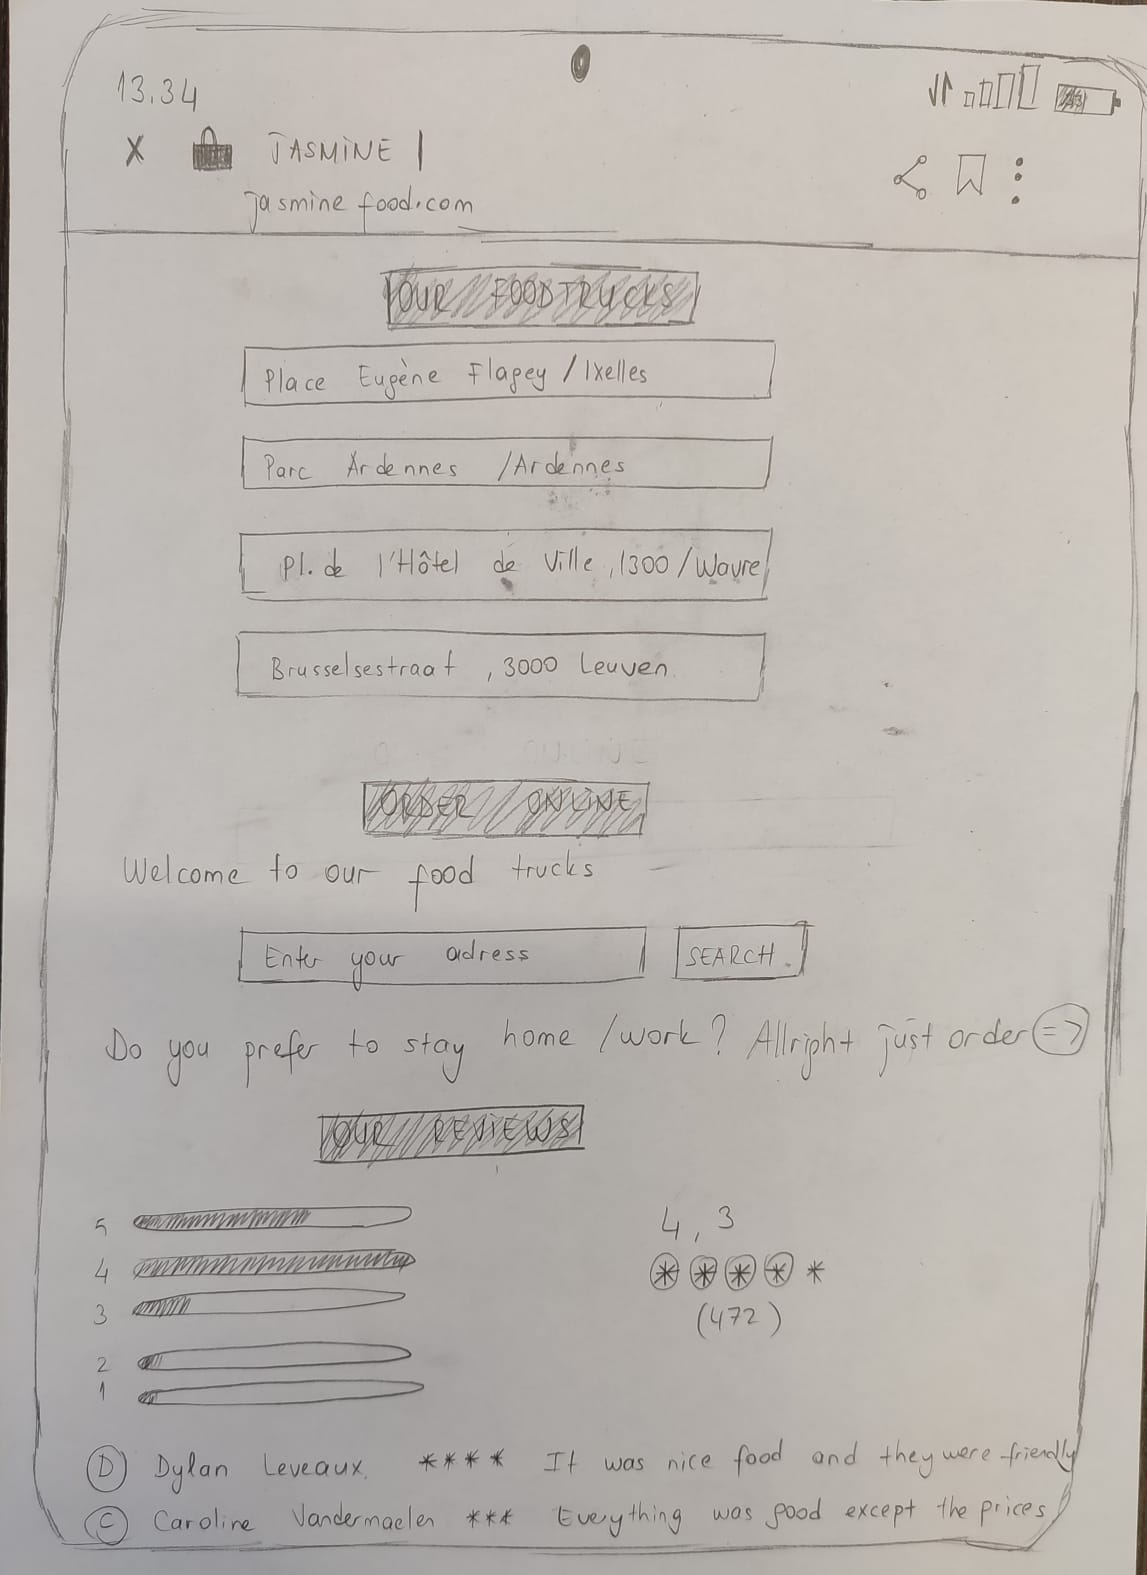 13.34
X JASMINE |
jasmine food.com
OUR FOODTRUCKS
Place Eugène Flagey / Ixelles
Parc Ardennes / Ardennes
Pl. de l'Hôtel de Ville, 1300 / Wavre
Brusselsestraat, 3000 Leuven.
ORDER ONLINE
Welcome to our food trucks
Enter your adress SEARCH.
Do you prefer to stay home / work? Allright just order =>
OUR REVIEWS
5
4
3
2
1
4,3
* * * * *
(472)
D Dylan Leveaux. **** It was nice food and they were friendly
C Caroline Vandermaelen *** Everything was good except the prices